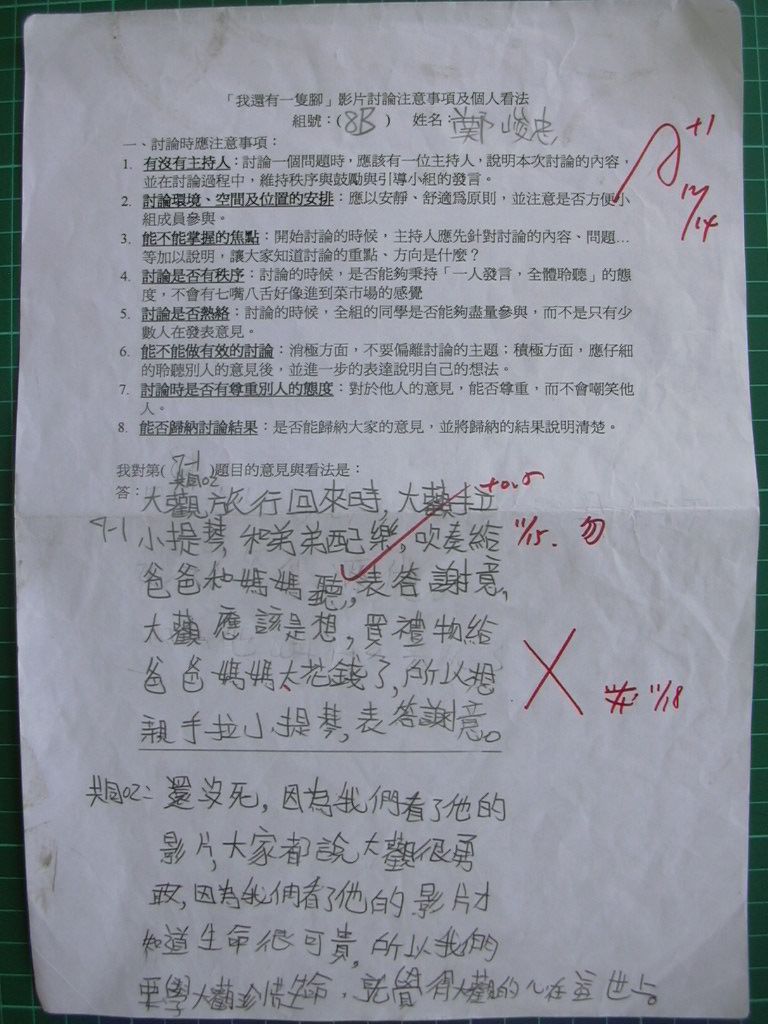 「我還有一隻腳」影片討論注意事項及個人看法
組號：(8B ) 姓名：鄭峻忠
+1
11/14
一、討論時應注意事項：
1. 有沒有主持人：討論一個問題時，應該有一位主持人，說明本次討論的內容，
並在討論過程中，維持秩序與鼓勵與引導小組的發言。
2. 討論環境、空間及位置的安排：應以安靜、舒適為原則，並注意是否方便小
組成員參與。
3. 能不能掌握的焦點：開始討論的時候，主持人應先針對討論的內容、問題…
等加以說明，讓大家知道討論的重點、方向是什麼？
4. 討論是否有秩序：討論的時候，是否能夠秉持「一人發言，全體聆聽」的態
度，不會有七嘴八舌好像進到菜市場的感覺
5. 討論是否熱絡：討論的時候，全組的同學是否能夠盡量參與，而不是只有少
數人在發表意見。
6. 能不能做有效的討論：消極方面，不要偏離討論的主題；積極方面，應仔細
的聆聽別人的意見後，並進一步的表達說明自己的想法。
7. 討論時是否有尊重別人的態度：對於他人的意見，能否尊重，而不會嘲笑他
人。
8. 能否歸納討論結果：是否能歸納大家的意見，並將歸納的結果說明清楚。
我對第(7-1 共同02)題目的意見與看法是：
答：大觀旅行回來時，大觀手拉 +0.5
7-1 小提琴，和弟弟配樂，吹奏給 11/15. 勿
爸爸和媽媽聽，表答謝意，
大觀應該是想，買禮物給
爸爸媽媽太花錢了，所以想 11/18
親手拉小提琴，表答謝意。
共同02：還沒死，因為我們看了他的
影片，大家都說大觀很勇
敢，因為我們看了他的影片才
知道生命很可貴，所以我們
要學大觀珍惜生命，就覺得大觀的心在這世上。